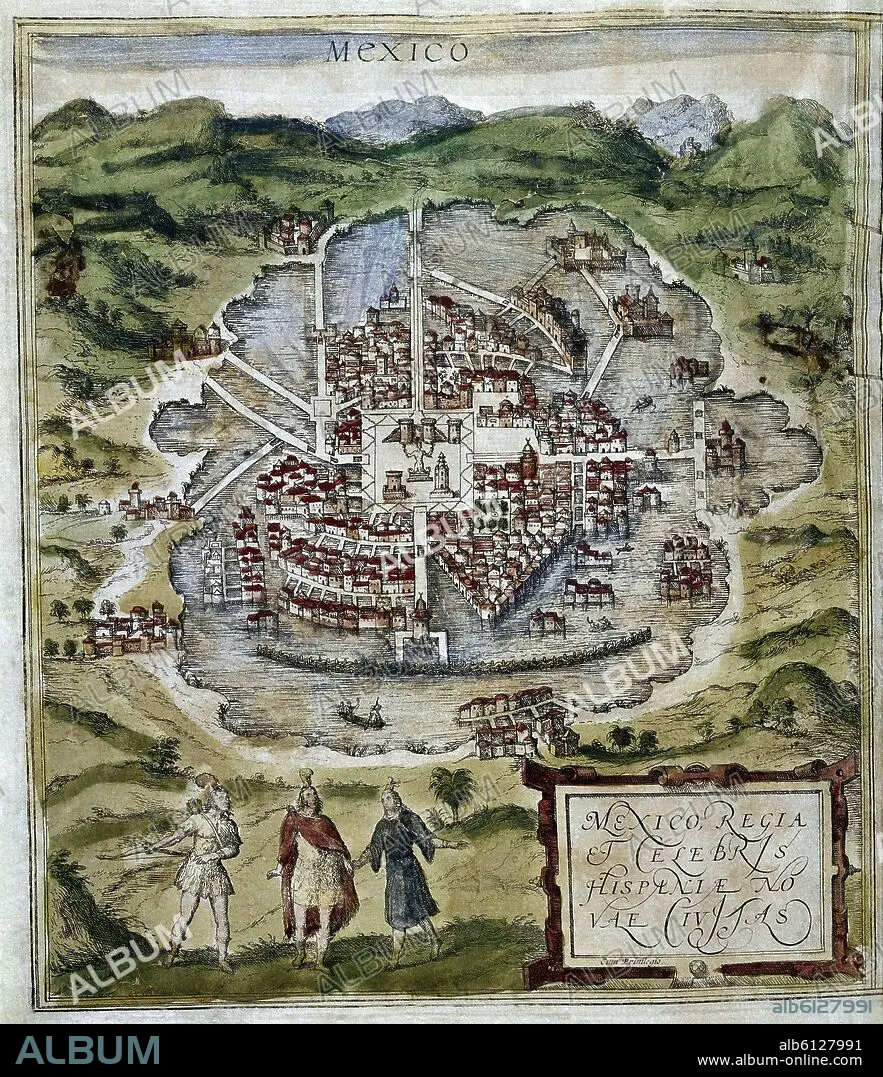 MEXICO
MEXICO, REGIA
ET CELEBRIS
HISPANIÆ NO
VAE CIVITAS
Cum Privilegio
ALBUM
alb6127991
ALBUM
alb6127991
www.album-online.com